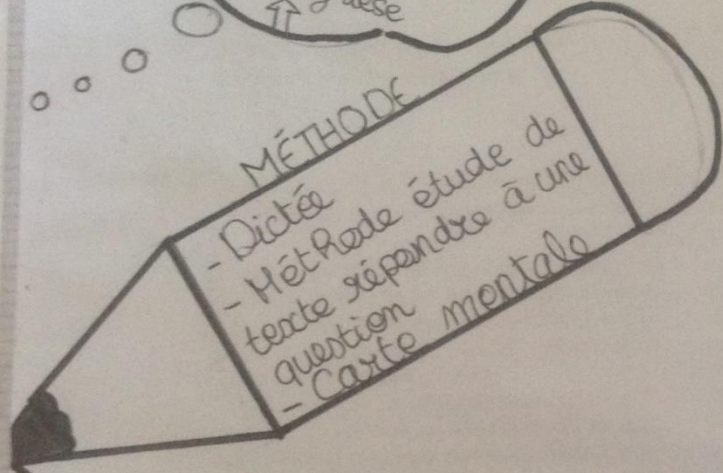 MÉTHODE
- Dictée
- Méthode étude de
texte répondre à une
question
- Carte mentale